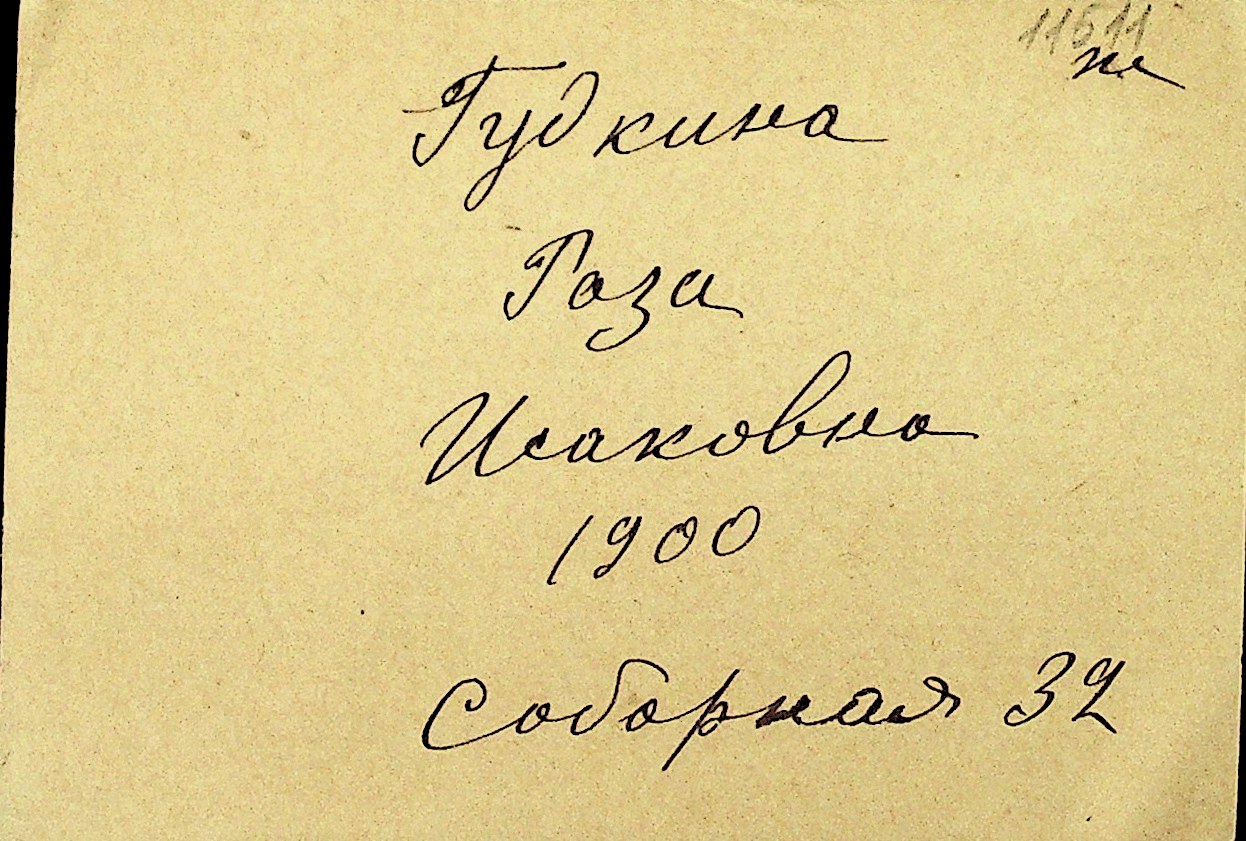 11511
Гудкина
Роза
Исаковна
1900
Соборная 32